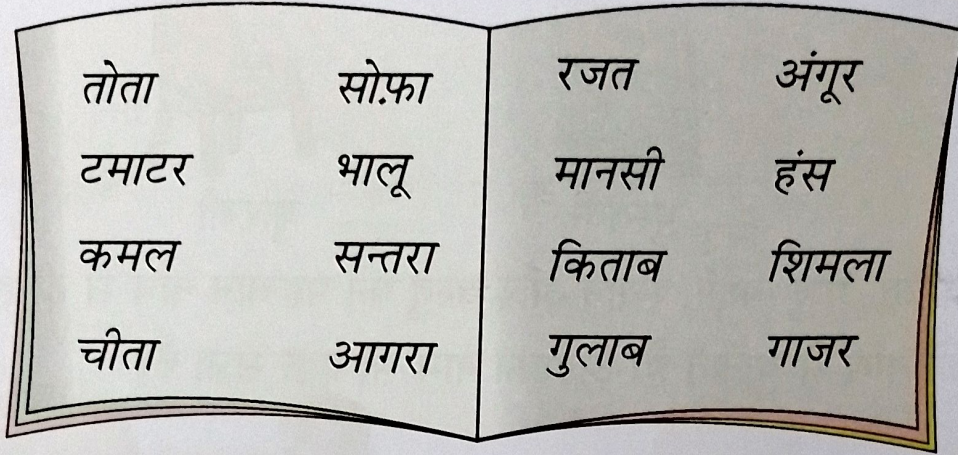 तोता सोफ़ा
टमाटर भालू
कमल सन्तरा
चीता आगरा
रजत अंगूर
मानसी हंस
किताब शिमला
गुलाब गाजर